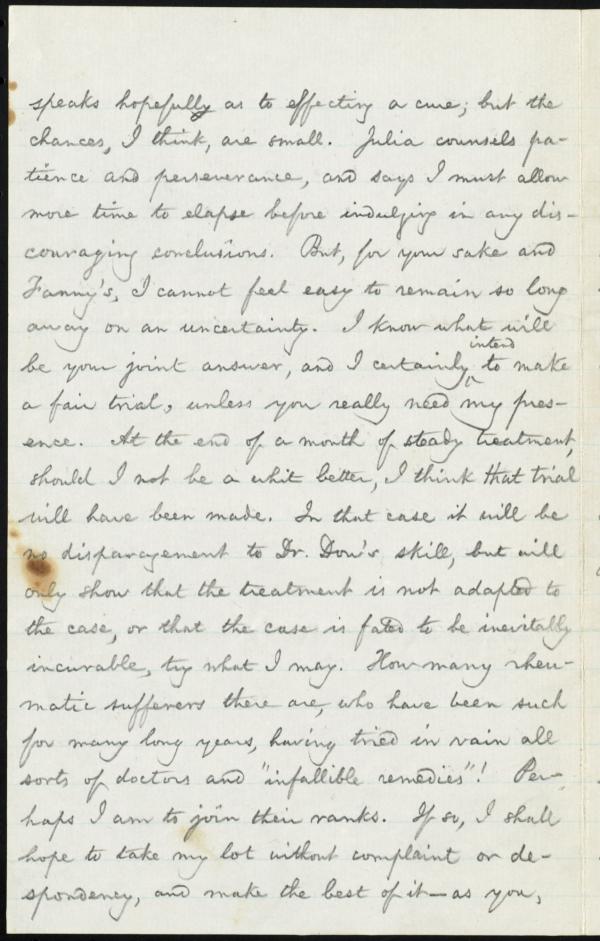 speaks hopefully as to effecting a cure; but the
chances, I think, are small. Julia counsels pa-
tience and perseverance, and says I must allow
more time to elapse before indulging in any dis-
couraging conclusions. But, for your sake and
Fanny's, I cannot feel easy to remain so long
away on an uncertainty. I know what will
be your joint answer, and I certainly intend to make
a fair trial, unless you really need my pres-
ence. At the end of a month of steady treatment,
should I not be a whit better, I think that trial
will have been made. In that case it will be
no disparagement to Dr. Dow's skill, but will
only show that the treatment is not adapted to
the case, or that the case is fated to be inevitably
incurable, try what I may. How many rheu-
matic sufferers there are, who have been such
for many long years, having tried in vain all
sorts of doctors and "infallible remedies"! Per-
haps I am to join their ranks. If so, I shall
hope to take my lot without complaint or de-
spondency, and make the best of it—as you,